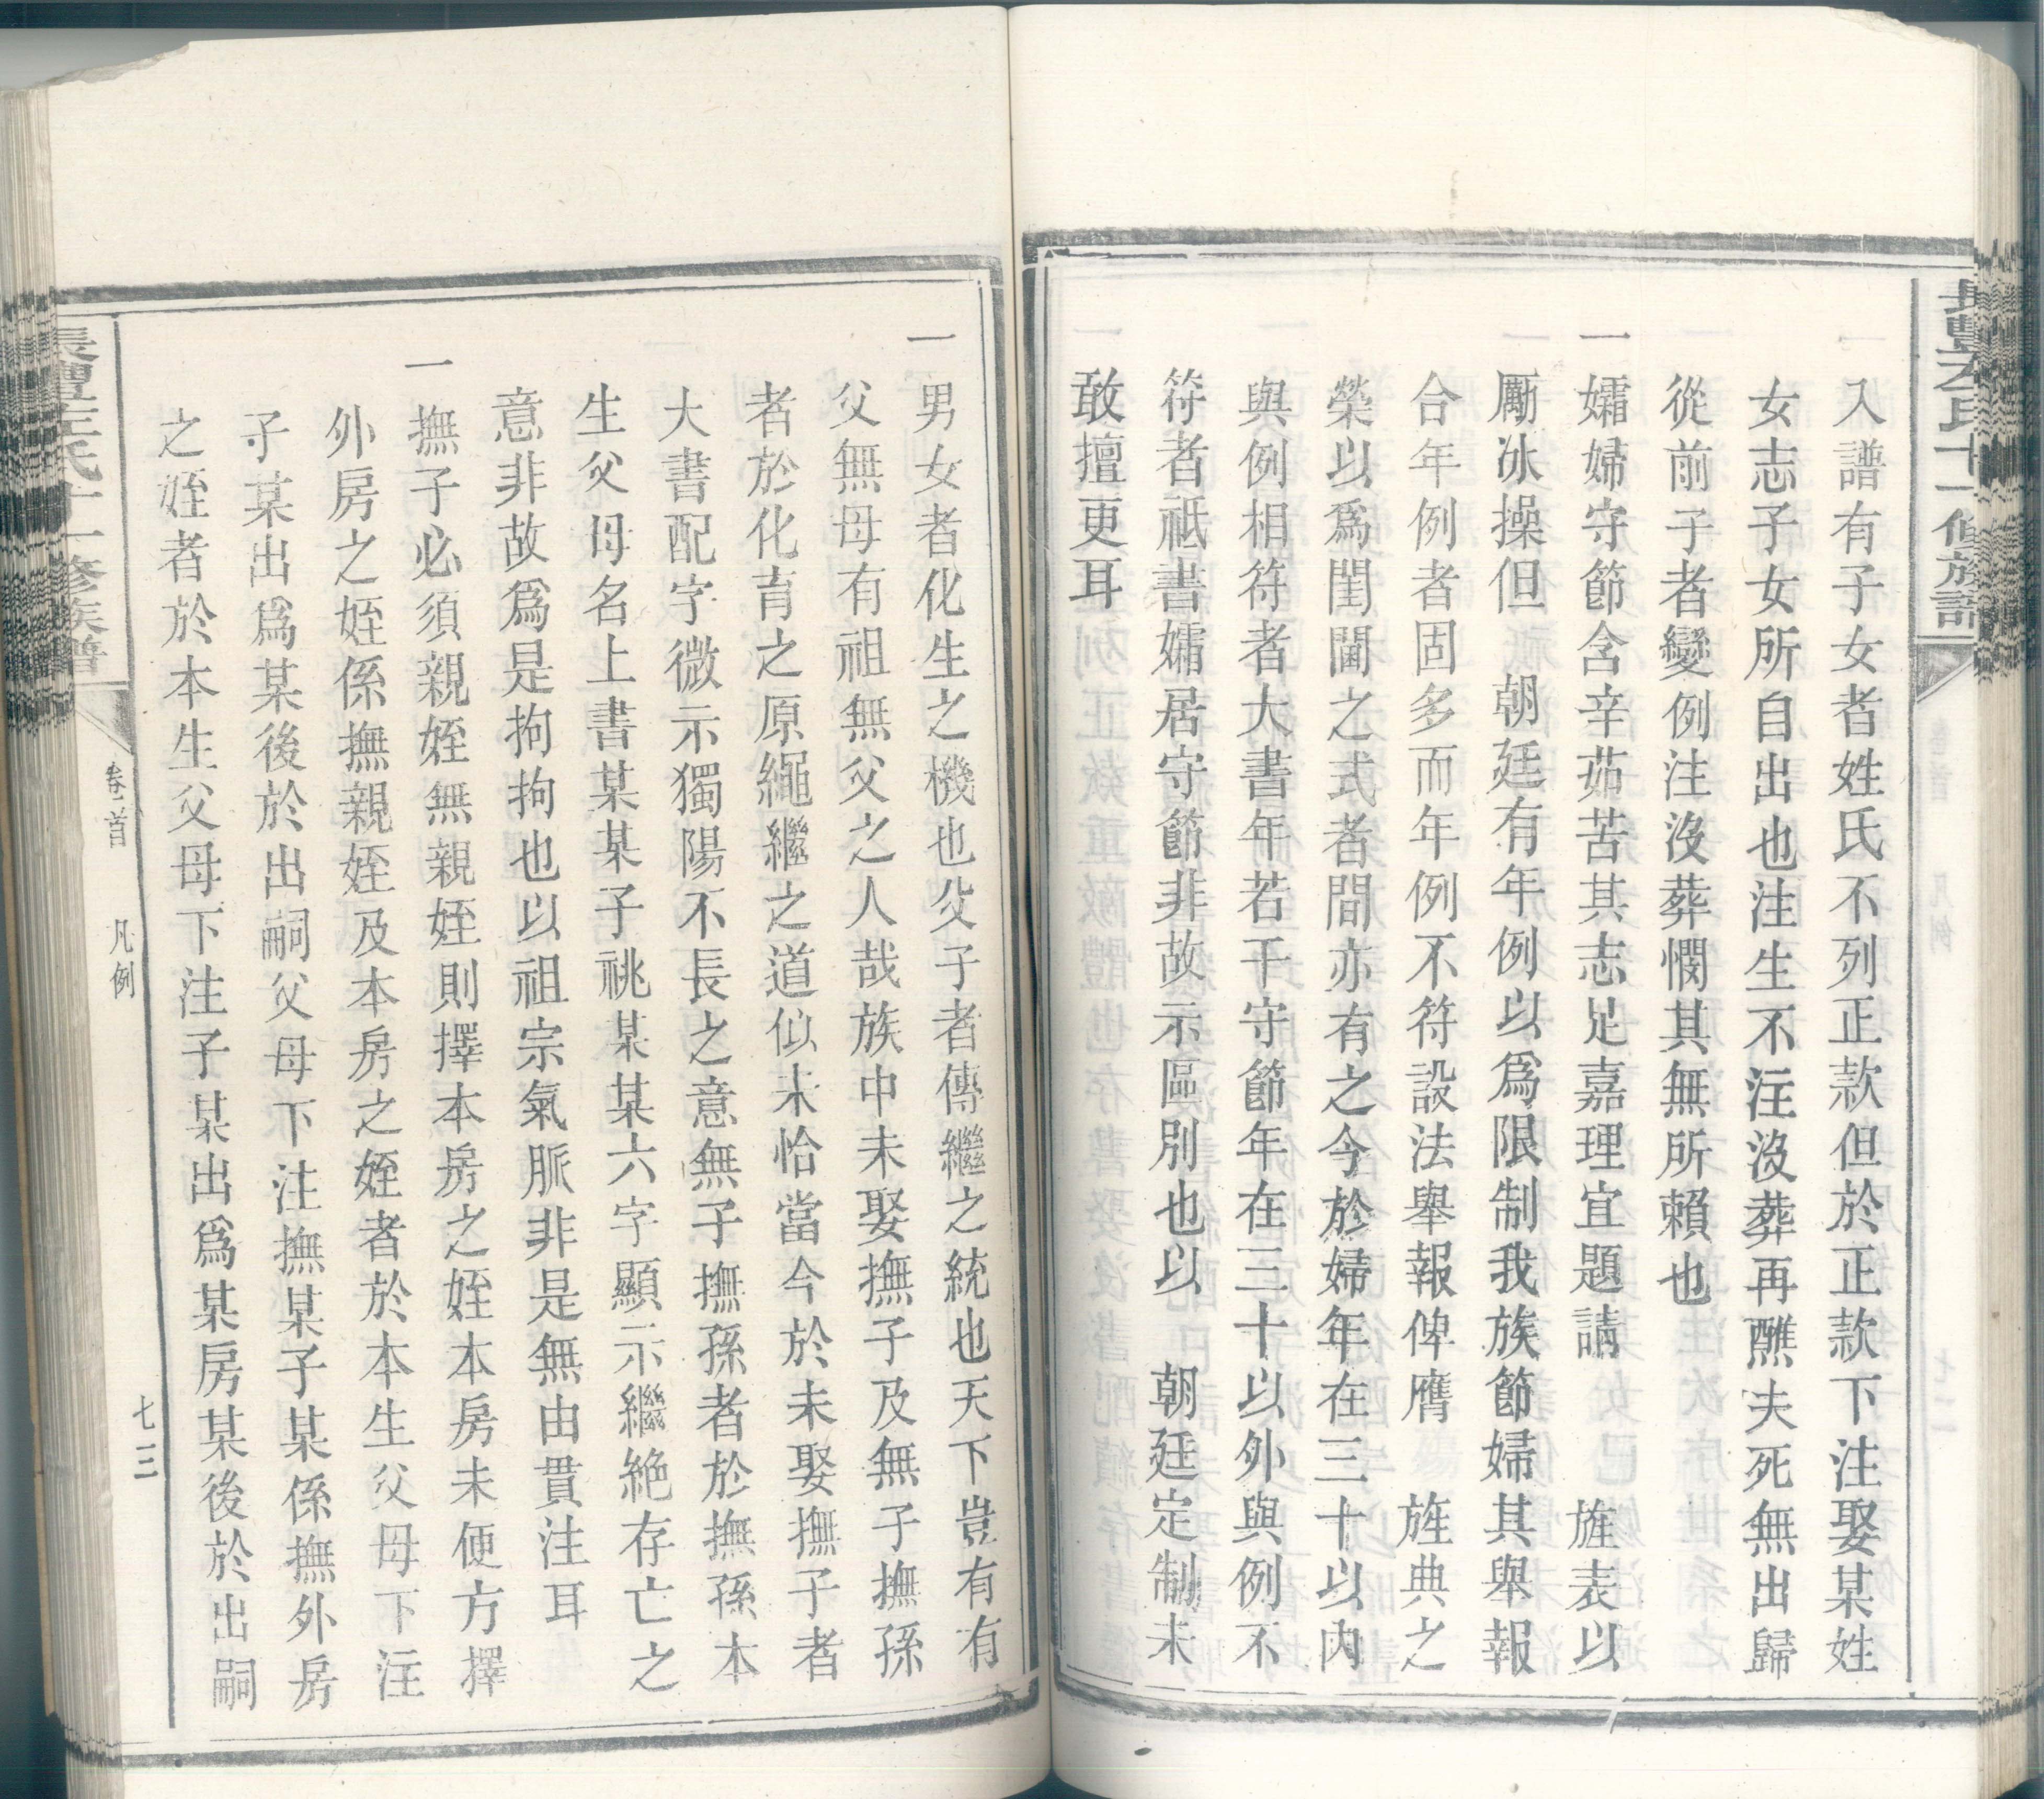 入譜有子女者姓氏不列正款但於正款下注娶某姓
女志子女所自出也注生不注沒葬再醮夫死無出歸
從前子者變例注沒葬憫其無所賴也
一孀婦守節含辛茹苦其志足嘉理宜題請 旌表以
勵冰操但 朝廷有年例以爲限制我族節婦其舉報
合年例者固多而年例不符設法舉報俾膺 旌典之
榮以爲閨閫之式者間亦有之今於婦年在三十以內
與例相符者大書年若干守節年在三十以外與例不
符者祗書孀居守節非故示區別也以 朝廷定制未
敢擅更耳
一男女者化生之機也父子者傳繼之統也天下豈有有
父無母有祖無父之人哉族中未娶撫子及無子撫孫
者於化育之原繩繼之道似未恰當今於未娶撫子者
大書配字微示獨陽不長之意無子撫孫者於撫孫本
生父母名上書某某子祧某某六字顯示繼絶存亡之
意非故爲是拘拘也以祖宗氣脈非是無由貫注耳
一撫子必須親姪無親姪則擇本房之姪本房未便方擇
外房之姪係撫親姪及本房之姪者於本生父母下注
子某出爲某後於出嗣父母下注撫某子某係撫外房
之姪者於本生父母下注子某出爲某房某後於出嗣
卷首 凡例
七三